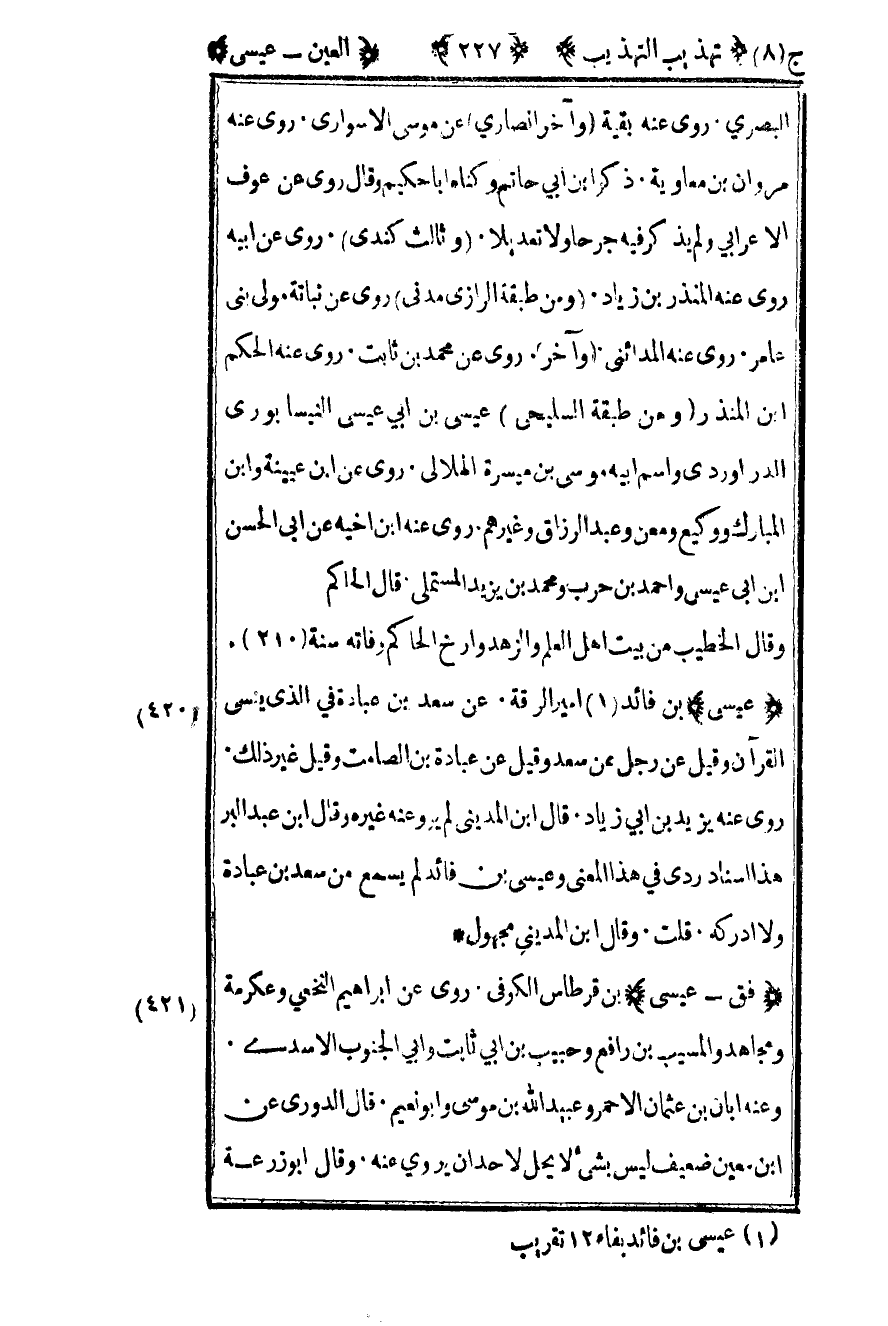 ج(٨) ﴿ تهذيب التهذيب ﴾ ﴿ ٢٢٧ ﴾ ﴿ العين ــ عيسى ﴾
البصري ٠ روى عنه بقية (وآخر انصاري) عن موسى الاسوارى ٠ روى عنه
مروان بن معاوية ٠ ذكرا بن ابي حاتم وكناه ابا حكيم وقال روى عن عوف
الاعرابي ولم يذكر فيه جرحا ولا تعديلا ٠ (وثالث كندى) ٠ روى عن ابيه
روى عنه المنذر بن زياد ٠ (ومن طبقة الرازى مدنى) روى عن نباتة مولى بنى
عامر ٠ روى عنه المدائنى ٠ (وآخر) ٠ روى عن محمد بن ثابت ٠ روى عنه الحكم
ابن المنذر (ومن طبقة السليحى) عيسى بن ابي عيسى النيسابورى
الدراوردى واسم ابيه موسى بن ميسرة الهلالى ٠ روى عن ابن عيينة وابن
المبارك ووكيع ومعن وعبد الرزاق وغيرهم ٠ روى عنه ابن اخيه عن ابى الحسن
ابن ابى عيسى واحمد بن حرب ومحمد بن يزيد المستملى ٠ قال الحاكم
وقال الخطيب من بيت اهل العلم والزهد وارخ الحاكم وفاته سنة (٢١٠) ٠
﴿ عيسى ﴾ بن فائد (١) امير الرقة ٠ عن سعد بن عبادة في الذى ينسى (٤٢٠)
القرآن وقيل عن رجل عمن سعد وقيل عن عبادة بن الصامت وقيل غير ذلك ٠
روى عنه يزيد بن ابي زياد ٠ قال ابن المدينى لم يرو عنه غيره وقال ابن عبد البر
هذا اسناد ردى في هذا المعنى وعيسى بن فائد لم يسمع من سعد بن عبادة
ولا ادركه ٠ قلت ٠ وقال ابن المديني مجهول *
﴿ فق ــ عيسى ﴾ بن قرطاس الكوفى ٠ روى عن ابراهيم النخعي وعكرمة (٤٢١)
ومجاهد والمسيب بن رافع وحبيب بن ابي ثابت وابي الجنوب الاسدے ٠
وعنه ابان بن عثمان الاحمر وعبيد الله بن موسى وابو نعيم ٠ قال الدورى عن
ابن معين ضعيف ليس بشئ لا يحل لاحد ان يروي عنه ٠ وقال ابوزرعة
(١) عيسى بن فائد بفاء ١٢ تقريب